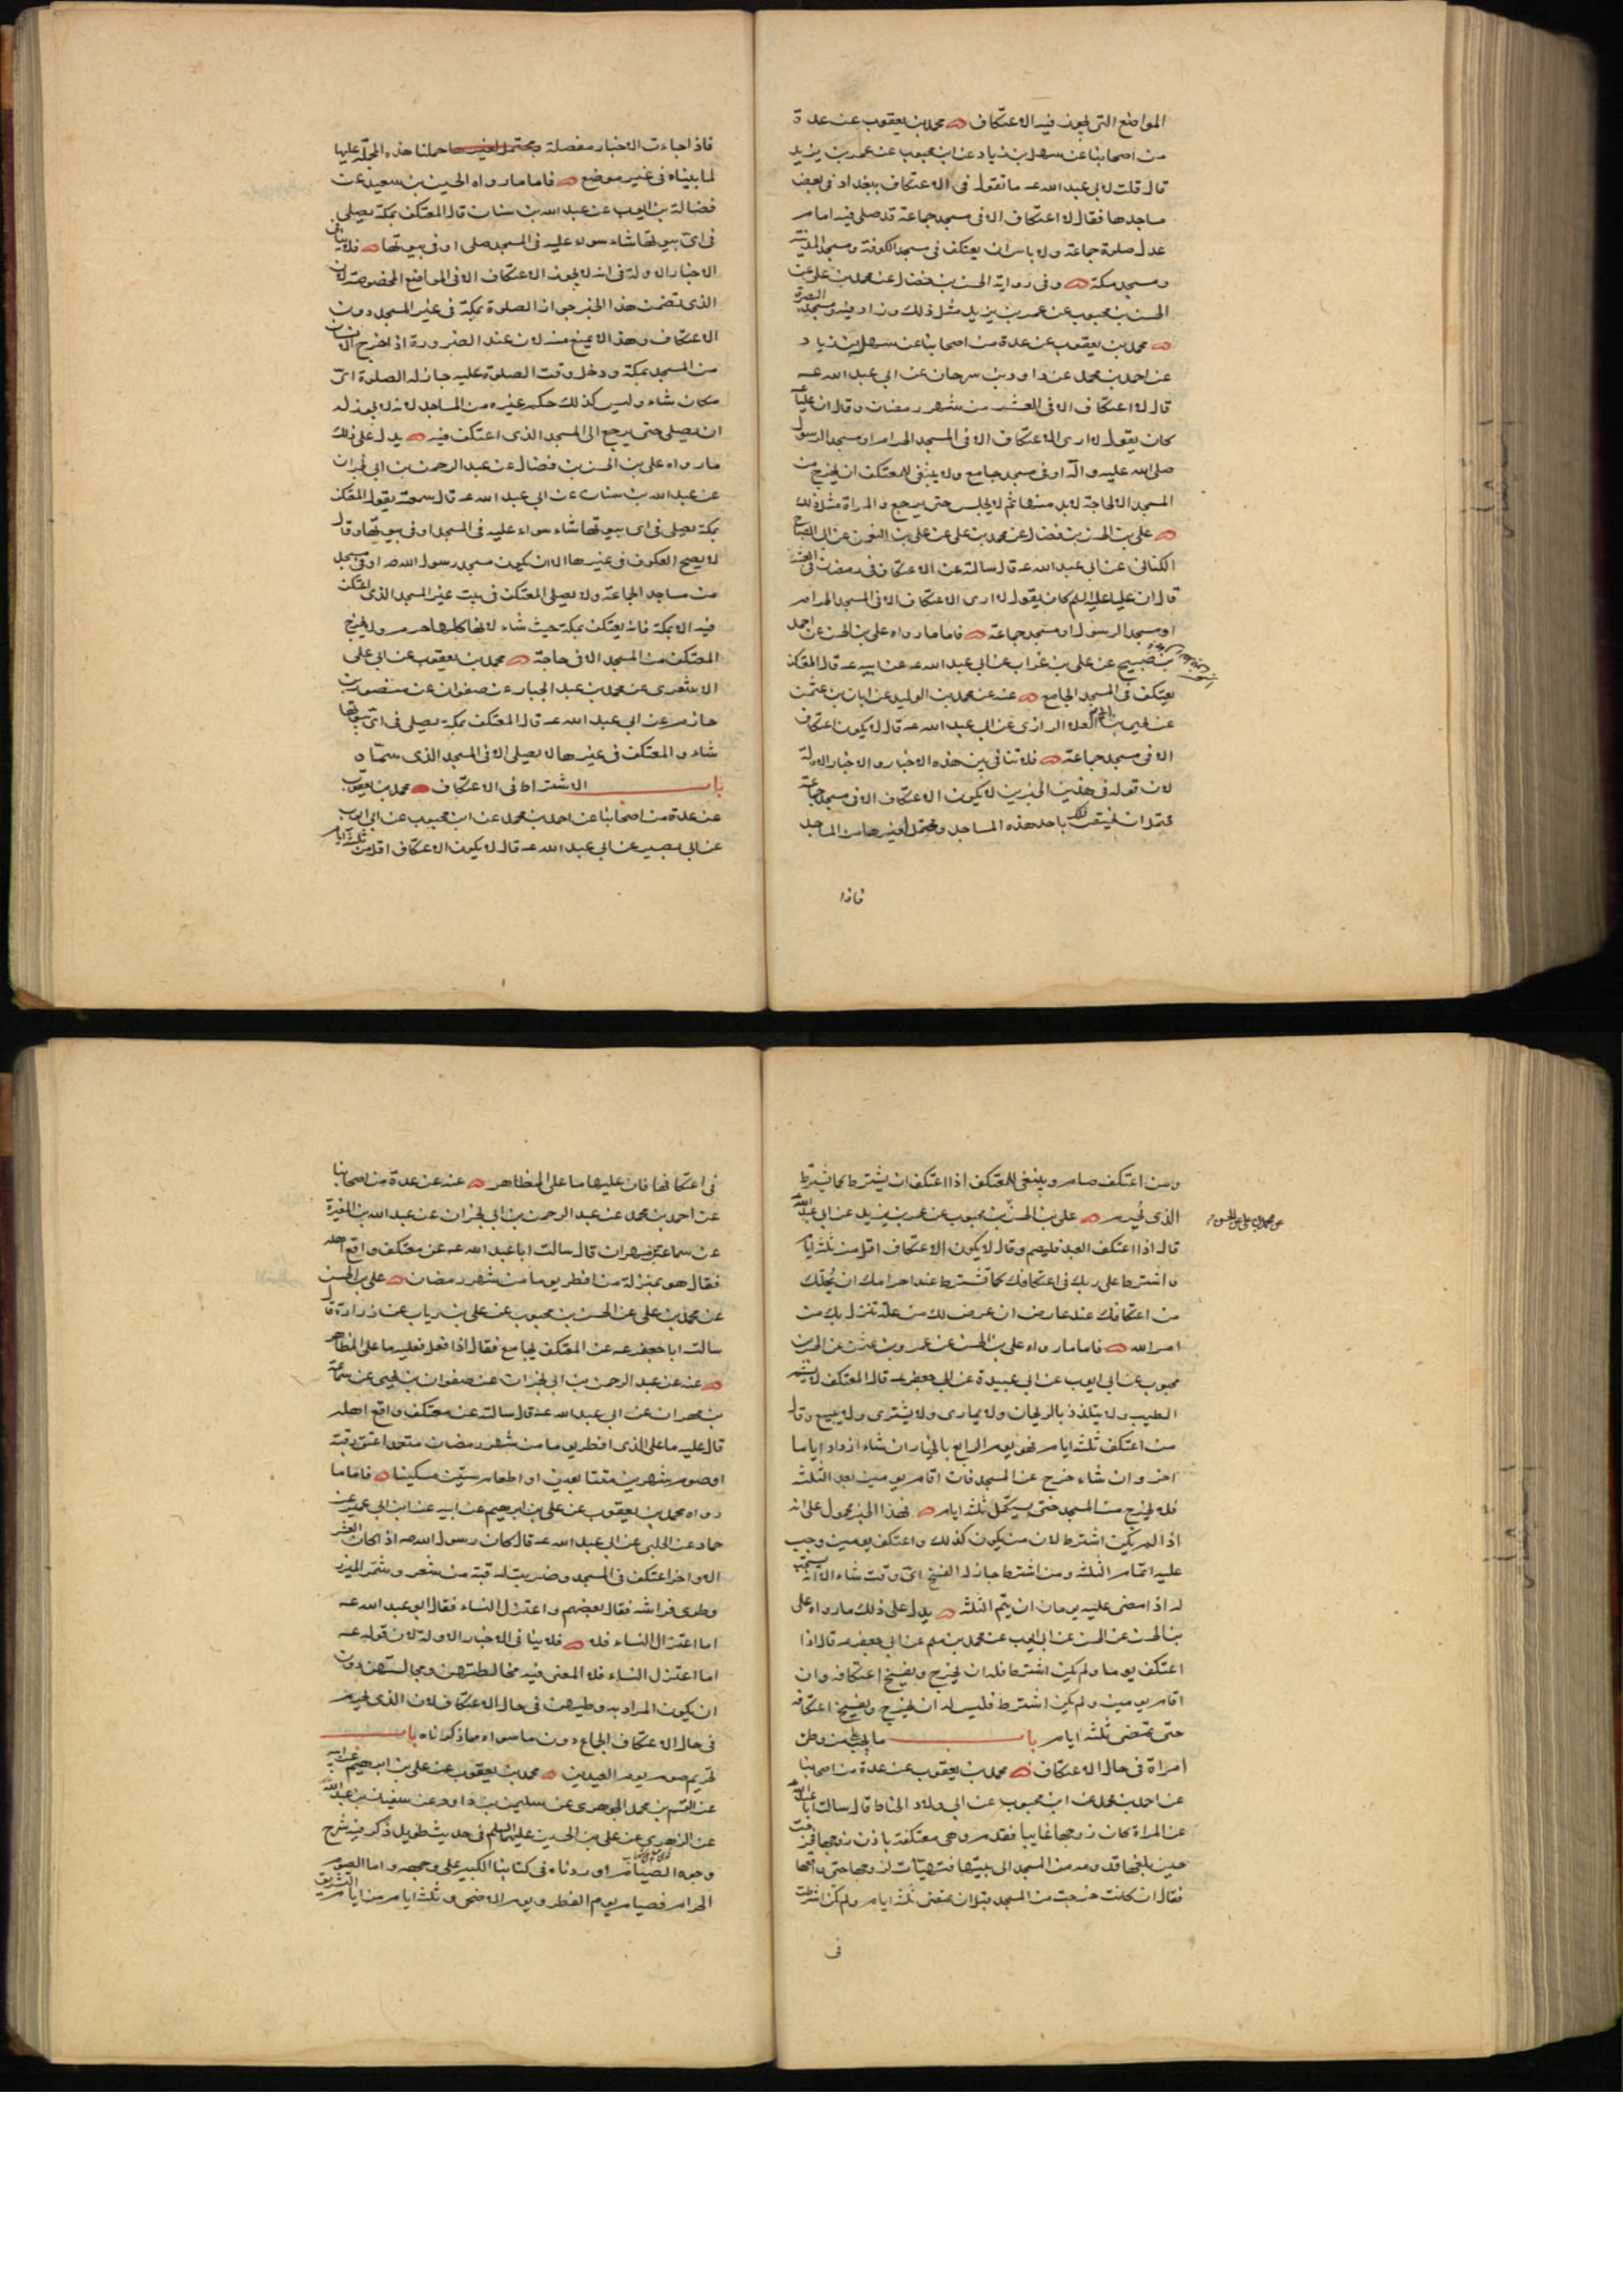 المواضع التى يجوز فيه الاعتكاف محمد بن يعقوب عن عدة
من اصحابنا عن سهل بن زياد عن ابن محبوب عن عمر بن يزيد
قال قلت لابى عبد الله عه ما تقول فى الاعتكاف ببغداد فى بعض
مساجدها فقال لا اعتكاف الا فى مسجد جماعة قد صلى فيه امام
عدل صلوة جماعة ولا باس ان يعتكف فى مسجد الكوفة ومسجد المدينة
ومسجد مكة وفى رواية الحسن بن فضال عن محمد بن على عن
الحسن بن محبوب عن عمر بن يزيد مثل ذلك وزاد فيه ومسجد البصرة
محمد بن يعقوب عن عدة من اصحابنا عن سهل بن زياد
عن احمد بن محمد عن داود بن سرحان عن ابى عبد الله عه
قال لا اعتكاف الا فى العشر من شهر رمضان وقال ان عليا
كان يقول لا ارى الاعتكاف الا فى المسجد الحرام او مسجد الرسول
صلى الله عليه واله او فى مسجد جامع ولا ينبغى للمعتكف ان يخرج من
المسجد الا لحاجة لابد منها ثم لا يجلس حتى يرجع والمراة مثل ذلك
على بن الحسن بن فضال عن محمد بن على عن على بن النعمن عن ابى الصباح
الكنانى عن ابى عبد الله عه قال سالته عن الاعتكاف فى رمضان فى العشر
قال ان عليا عليه السلم كان يقول لا ارى الاعتكاف الا فى المسجد الحرام
او مسجد الرسول او مسجد جماعة فاما ما رواه على بن الحسن عن احمد
بن صبيح عن على بن غراب عن ابى عبد الله عه عن ابيه عه قال المعتكف
يعتكف فى المسجد الجامع عنه عن محمد بن الوليد عن ابان بن عثمن
عن يحيى بن العلا الرازى عن ابى عبد الله عه قال لا يكون اعتكاف
الا فى مسجد جماعة فلا تنافى بين هذه الاخبار والاخبار الاولة
لان قوله فى هذين الخبرين لا يكون الاعتكاف الا فى مسجد جماعة
يحتمل ان يختص ذلك باحد هذه المساجد ويحتمل لغيرها من المساجد
فاذا
فاذا جاءت الاخبار مفصلة ويحتمل لغيرها حملنا هذه المجملة عليها
لما بيناه فى غير موضع فاما ما رواه الحسين بن سعيد عن
فضالة بن ايوب عن عبد الله بن سنان قال المعتكف بمكة يصلى
فى اى بيوتها شاء سواء عليه فى المسجد صلى او فى بيوتها فلا ينافى
الاخبار الاولة فى انه لا يجوز الاعتكاف الا فى المواضع المخصوصة لان
الذى تضمن هذا الخبر جواز الصلوة بمكة فى غير المسجد دون
الاعتكاف وهذا لا يمنع منه لان عند الضرورة اذا خرج الانسان
من المسجد بمكة ودخل وقت الصلوة عليه جاز له الصلوة اى
مكان شاء وليس كذلك حكم غيره من المساجد لانه لا يجوز له
ان يصلى حتى يرجع الى المسجد الذى اعتكف فيه يدل على ذلك
ما رواه على بن الحسن بن فضال عن عبد الرحمن بن ابى نجران
عن عبد الله بن سنان عن ابى عبد الله عه قال سمعته يقول المعتكف
بمكة يصلى فى اى بيوتها شاء سواء عليه فى المسجد او فى بيوتها وقال
لا يصح العكوف فى غيرها الا ان يكون مسجد رسول الله ص او فى مسجد
من مساجد الجماعة ولا يصلى المعتكف فى بيت غير المسجد الذى اعتكف
فيه الا بمكة فانه يعتكف بمكة حيث شاء لانها كلها حرم ولا يخرج
المعتكف من المسجد الا فى حاجة محمد بن يعقوب عن ابى على
الاشعرى عن محمد بن عبد الجبار عن صفوان عن منصور بن
حازم عن ابى عبد الله عه قال المعتكف بمكة يصلى فى اى بيوتها
شاء والمعتكف فى غيرها لا يصلى الا فى المسجد الذى سماه
باب الاشتراط فى الاعتكاف محمد بن يعقوب
عن عدة من اصحابنا عن احمد بن محمد عن ابن محبوب عن ابى ايوب
عن ابى بصير عن ابى عبد الله عه قال لا يكون الاعتكاف اقل من ثلثة ايام
ومن اعتكف صام وينبغى للمعتكف اذا اعتكف ان يشترط كما يشترط
الذى يحرم على بن الحسن بن محبوب عن عمر بن يزيد عن ابى عبد الله
عن محمد بن على عن الحسن
قال اذا اعتكف العبد فليصم وقال لا يكون الاعتكاف اقل من ثلثة ايام
واشترط على ربك فى اعتكافك كما تشترط عند احرامك ان يحلك
من اعتكافك عند عارض ان عرض لك من علة تنزل بك من
امر الله فاما ما رواه على بن الحسن عن عمرو بن عثمن عن الحسن بن
محبوب عن ابى ايوب عن ابى عبيدة عن ابى جعفر عه قال المعتكف لا يشم
الطيب ولا يتلذذ بالريحان ولا يمارى ولا يشترى ولا يبيع وقال
من اعتكف ثلثة ايام فهو يوم الرابع بالخيار ان شاء ازداد اياما
اخر وان شاء خرج عن المسجد فان اقام يومين بعد الثلثة
فلا يخرج من المسجد حتى يستكمل ثلثة ايام فهذا الخبر محمول على انه
اذا لم يكن اشترط لان من يكون كذلك واعتكف يومين وجب
عليه اتمام الثلثة ومن اشترط جاز له الفسخ اى وقت شاء الا انه يستحب
له اذا مضى عليه يومان ان يتم الثلثة يدل على ذلك ما رواه على
بن الحسن عن الحسن عن ابى ايوب عن محمد بن مسلم عن ابى جعفر عه قال اذا
اعتكف يوما ولم يكن اشترط فله ان يخرج ويفسخ اعتكافه وان
اقام يومين ولم يكن اشترط فليس له ان يخرج ويفسخ اعتكافه
حتى تمضى ثلثة ايام باب ما يجب على من وطئ
امراة فى حال الاعتكاف محمد بن يعقوب عن عدة من اصحابنا
عن احمد بن محمد عن ابن محبوب عن ابى ولاد الحناط قال سالت ابا عبد الله
عن المراة كان زوجها غايبا فقدم وهى معتكفة باذن زوجها فخرجت
حين بلغها قدومه من المسجد الى بيتها فتهيات لزوجها حتى واقعها
فقال ان كانت خرجت من المسجد قبل ان تمضى ثلثة ايام ولم تكن اشترطت
فى
فى اعتكافها فان عليها ما على المظاهر عنه عن عدة من اصحابنا
عن احمد بن محمد عن عبد الرحمن بن ابى نجران عن عبد الله بن المغيرة
عن سماعة بن مهران قال سالت ابا عبد الله عه عن معتكف واقع اهله
فقال هو بمنزلة من افطر يوما من شهر رمضان على بن الحسن
عن محمد بن على عن الحسن بن محبوب عن على بن رياب عن زرارة قال
سالت ابا جعفر عه عن المعتكف يجامع فقال اذا فعل فعليه ما على المظاهر
عنه عن عبد الرحمن بن ابى نجران عن صفوان بن يحيى عن سماعة
بن مهران عن ابى عبد الله عه قال سالته عن معتكف واقع اهله
قال عليه ما على الذى افطر يوما من شهر رمضان متعمدا عتق رقبة
او صوم شهرين متتابعين او اطعام ستين مسكينا فاما ما
رواه محمد بن يعقوب عن على بن ابرهيم عن ابيه عن ابن ابى عمير عن
حماد عن الحلبى عن ابى عبد الله عه قال كان رسول الله ص اذا كان العشر
الاواخر اعتكف فى المسجد وضربت له قبة من شعر وشمر الميزر
وطوى فراشه فقال بعضهم واعتزل النساء فقال ابو عبد الله عه
اما اعتزال النساء فلا فلا ينافى الاخبار الاولة لان قوله عه
اما اعتزل النساء فلا المعنى فيه مخالطتهن ومجالستهن دون
ان يكون المراد به وطيهن فى حال الاعتكاف لان الذى يحرم
فى حال الاعتكاف الجماع دون ما سواه مما ذكرناه باب
تحريم صوم يوم العيدين محمد بن يعقوب عن على بن ابرهيم عن ابيه
عن القسم بن محمد الجوهرى عن سليمن بن داود عن سفين بن عيينة
عن الزهرى عن على بن الحسين عليهما السلم فى حديث طويل ذكر فيه شرح
وجوه الصيام اوردناه فى كتابنا الكبير على وجهه واما الصوم
الحرام فصيام يوم الفطر ويوم الاضحى وثلثة ايام من ايام التشريق